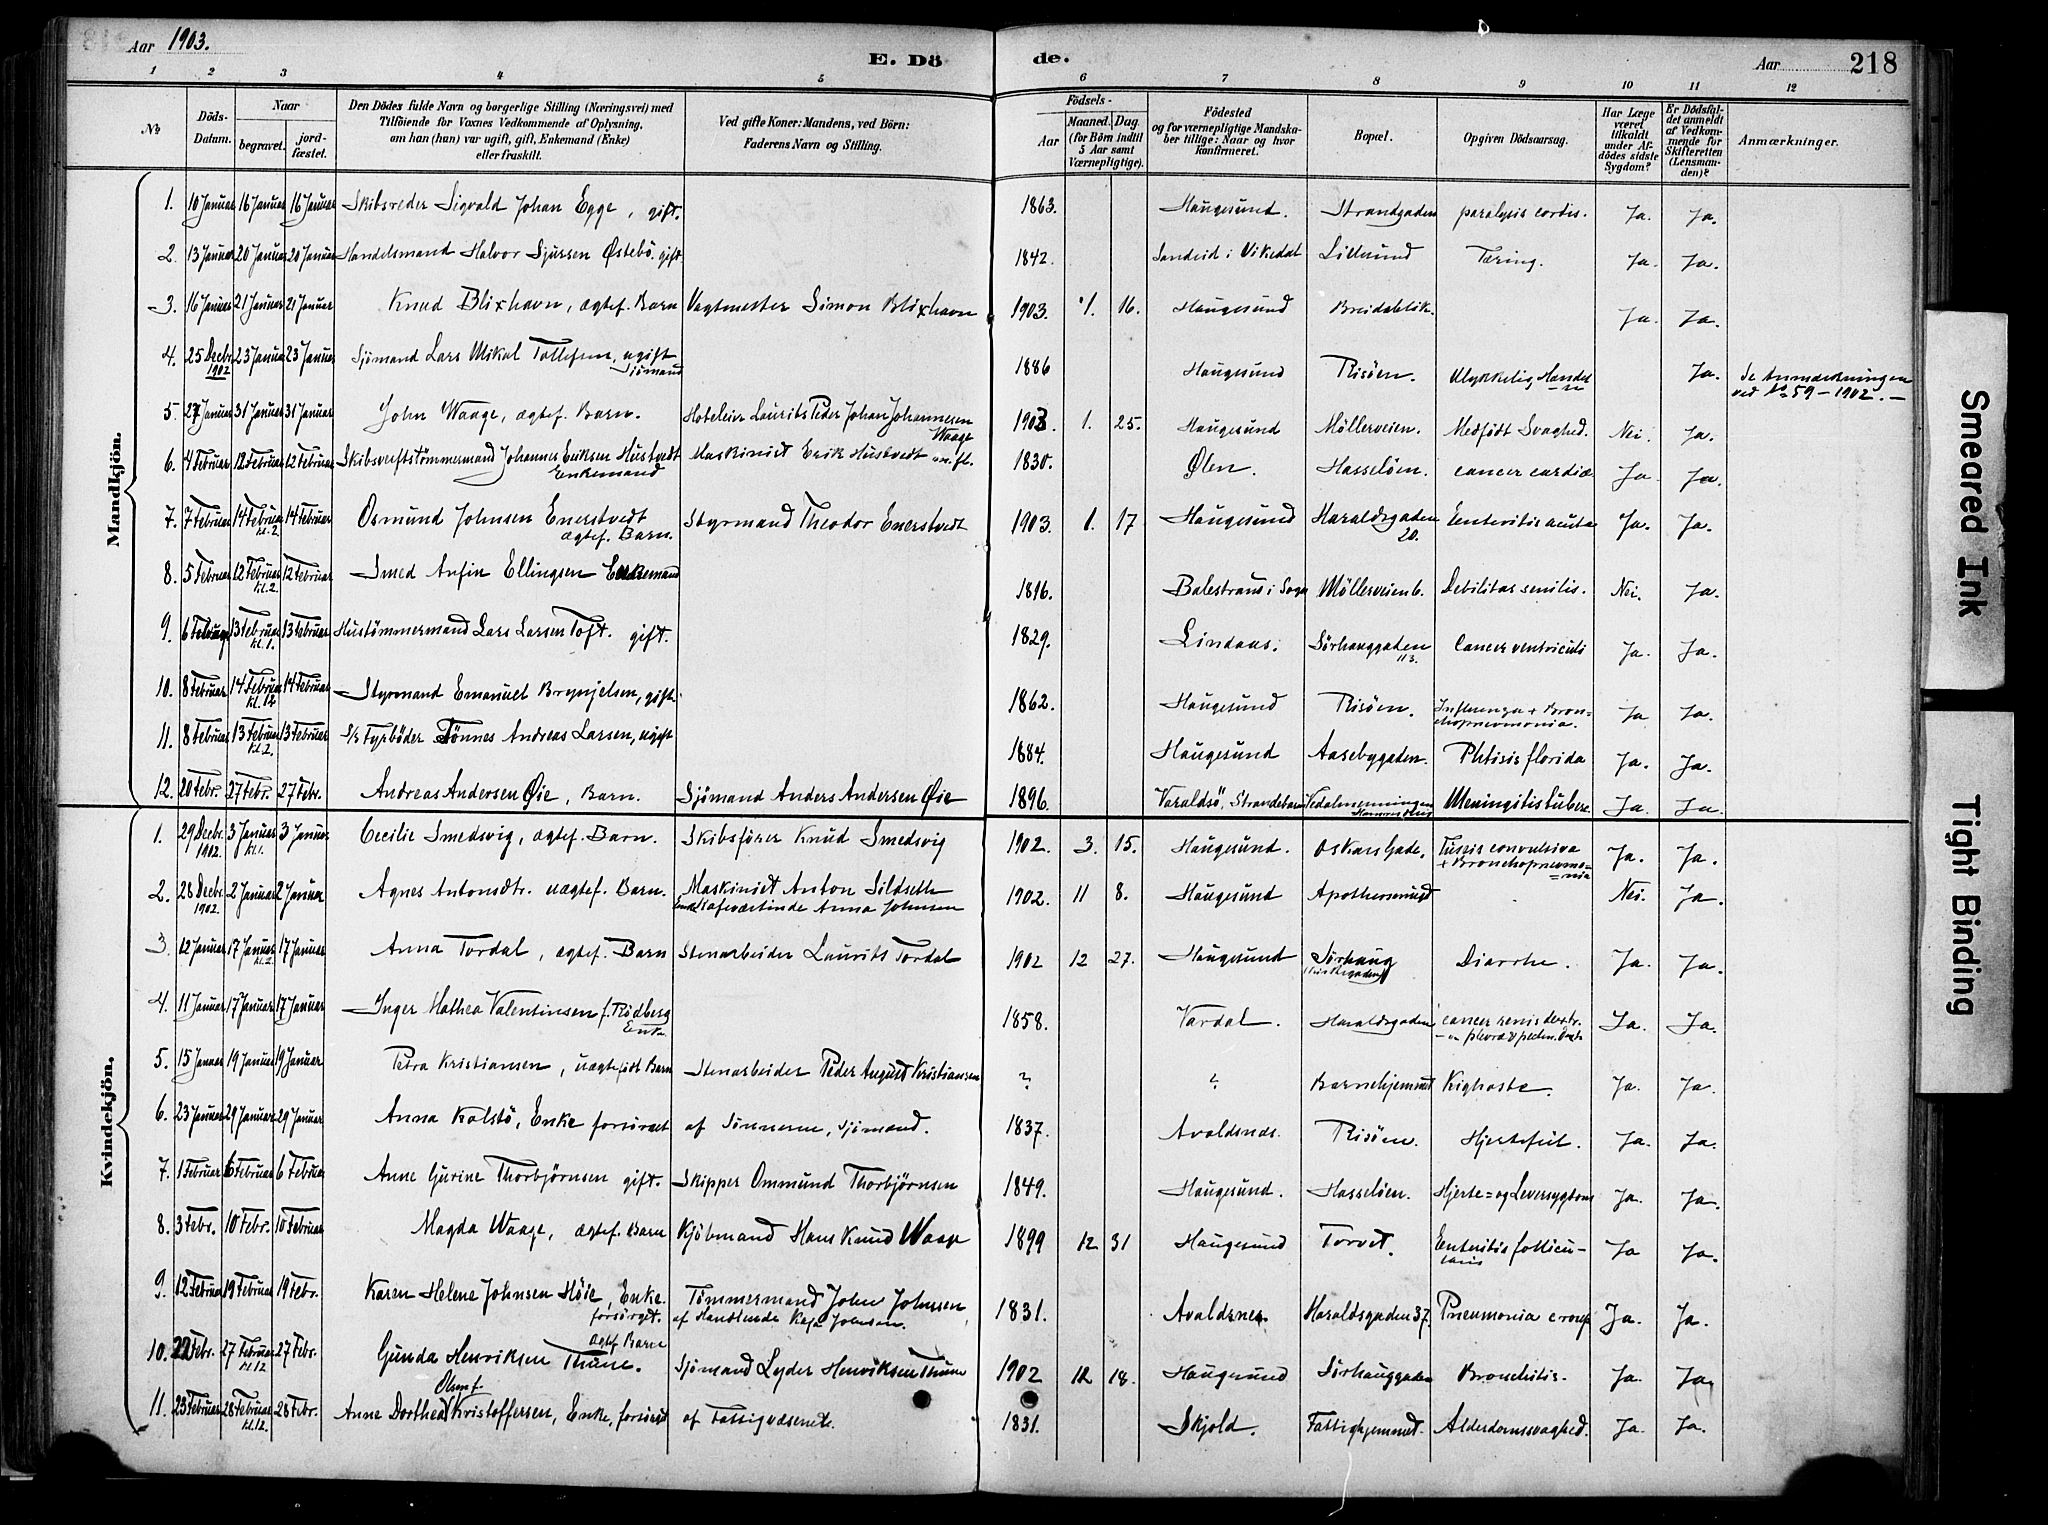 Aar 1903.
E. Dö
de.
Aar
218
1 2 3 4 5 6 7 8 9 10 11 12
No
Döds-Datum.
Naar
begravet.
jordfæstet.
Den Dödes fulde Navn og borgerlige Stilling (Næringsvei) med
Tilföiende for Voxnes Vedkommende af Oplysning,
om han (hun) var ugift, gift, Enkemand (Enke)
eller fraskilt.
Ved gifte Koner: Mandens, ved Börn:
Faderens Navn og Stilling.
Födsels-
Aar
Maaned. Dag.
(for Börn indtil
5 Aar samt
Værnepligtige).
Födested
og for værnepligtige Mandska-
ber tillige: Naar og hvor
konfirmeret.
Bopæl.
Opgiven Dödsaarsag.
Har Læge
været
tilkaldt
under Af-
dödes sidste
Sygdom?
Er Dödsfal-
det anmeldt
af Vedkom-
mende for
Skifteretten
(Lensman-
den)?
Anmærkninger.
Mandkjön.
1. 10 Januar 16 Januar 16 Januar Skibsreder Sigvald Johan Egge, gift. 1863. Haugesund. Strandgaden paralysis cordis. Ja. Ja.
2. 13 Januar 20 Januar 20 Januar Handelsmand Halvor Sjursen Østebö. gift 1842. Sandeid i Vikedal Lillesund Tæring. Ja. Ja.
3. 16 Januar 21 Januar 21 Januar Knud Blixhavn, ægtef. Barn Vagtmester Simon Blixhavn 1903. 1. 16. Haugesund Breidablik. Ja. Ja.
4. 25 Decbr. 1902 23 Januar 23 Januar Sjömand Lars Mikal Tollefsen, ugift Sjömand 1886 Haugesund Risöen. Ulykkelig Hændelse Ja. Se Anmærkningen
ved No 59 - 1902. -
5. 27 Januar 31 Januar 31 Januar John Waage, ægtef. Barn. Hoteleier Laurits Peder Johan Johannesen Waage 1903. 1. 25. Haugesund Möllerveien. Medfödt Svaghed. Nei. Ja.
6. 4 Februar 12 Februar 12 Februar Skibsverftstömmermand Johannes Eriksen Hustvedt Enkemand Maskinist Erik Hustvedt m. fl. 1830. Ølen. Hasselöen. cancer cardiæ Ja. Ja.
7. 7 Februar 14 Februar kl. 2. 14 Februar Osmund Johnsen Enerstvedt ægtef. Barn. Styrmand Theodor Enerstvedt 1903. 1. 17 Haugesund Haraldsgaden 20. Enteritis acuta Ja. Ja.
8. 5 Februar 12 Februar kl. 2. 12 Februar Smed Anfin Ellingsen Enkemand 1816. Balestrand i Sogn Möllerveien 6. Debilitas senilis. Nei. Ja.
9. 6 Februar 13 Februar kl. 1. 13 Februar Hustömmermand Lars Larsen Toft. gift. 1829. Lindaas. Sörhauggaden 113. Cancer ventriculi Ja. Ja.
10. 8 Februar 14 Februar kl. 12 14 Februar Styrmand Emanuel Brynjelsen, gift. 1862. Haugesund Risöen. Influenza + Bron-
chopneumonia. Ja Ja.
11. 8 Februar 13 Februar kl. 2. 13 Februar S/s Fyrböder Tönnes Andreas Larsen, ugift 1884. Haugesund Aasebygaden. Phtisis florida Ja. Ja.
12. 20 Febr. 27 Febr. 27 Febr. Andreas Andersen Øie, Barn. Sjömand Anders Andersen Øie 1896. Varaldsö, Strandebarm Meningitis tuberc. Ja. Ja.
Kvindekjön.
1. 29 Decbr. 1902. 3 Januar kl. 1. 3 Januar Cecilie Smedsvig, ægtef. Barn. Skibsförer Knud Smedsvig 1902. 3. 15. Haugesund. Oskars Gade. Tussis convulsiva
+ Bronchopneumo-
=nia Ja. Ja.
2. 28 Decbr. 1902. 2 Januar 2 Januar Agnes Antonsdtr. uægtef. Barn. Maskinist Anton Sildseth
Enke Kafeværtinde Anna Johnsen 1902. 11 8. Haugesund Nei. Ja.
3. 12 Januar 17 Januar kl. 2. 17 Januar Anna Tordal, ægtef. Barn Stenarbeider Laurits Tordal 1902 12 27. Haugesund Sörhaug Diarrhe. Ja. Ja.
4. 11 Januar 17 Januar 17 Januar Inger Mathea Valentinsen f. Rödberg Enke 1858. Vardal. Haraldsgaden cancer renis dextr. Ja. Ja.
5. 15 Januar 19 Januar 19 Januar Petra Kristiansen, uægtefödt Barn Stenarbeider Peder August Kristiansen ? ? Barnehjemmet Kighoste. Ja. Ja.
6. 23 Januar 29 Januar 29 Januar Anna Kolstö, Enke forsörget af Sönnerne, Sjömænd. 1837. Avaldsnes. Risöen. Hjertefeil. Ja. Ja.
7. 1 Februar 6 Februar 6 Februar Anne Gurine Thorbjörnsen gift. Skipper Ommund Thorbjörnsen 1849. Haugesund. Hasselöen. Hjerte= og Leversygdom Ja. Ja.
8. 3 Febr. 10 Febr. 10 Februar Magda Waage, ægtef. Barn Kjöbmand Hans Knud Waage 1899 12 31 Haugesund Torvet. Enteritis follicu-
laris Ja Ja.
9. 12 Februar 19 Februar 19 Febr. Karen Helene Johnsen Höie, Enke. forsörget. Tömmermand John Johnsen,
af Handlende Kaja Johnsen. 1831. Avaldsnes. Haraldsgaden 37. Pneumonia croup Ja. Ja.
10. 22 Febr. 27 Februar kl. 12 27 Febr. Gunda Henriksen Thune. ægtef. Barn Sjömand Lyder Henriksen Thune 1902 12 18. Haugesund Sörhauggaden Bronchitis. Ja. Ja.
11. 23 Februar 28 Februar kl. 12. 28 Febr. Anne Dorthea Olsen f. Kristoffersen, Enke, forsörget af Fattigvæsenet. 1831. Skjold. Fattighjemmet. Alderdomssvaghed. Ja. Ja.
Smeared Ink
Tight Binding